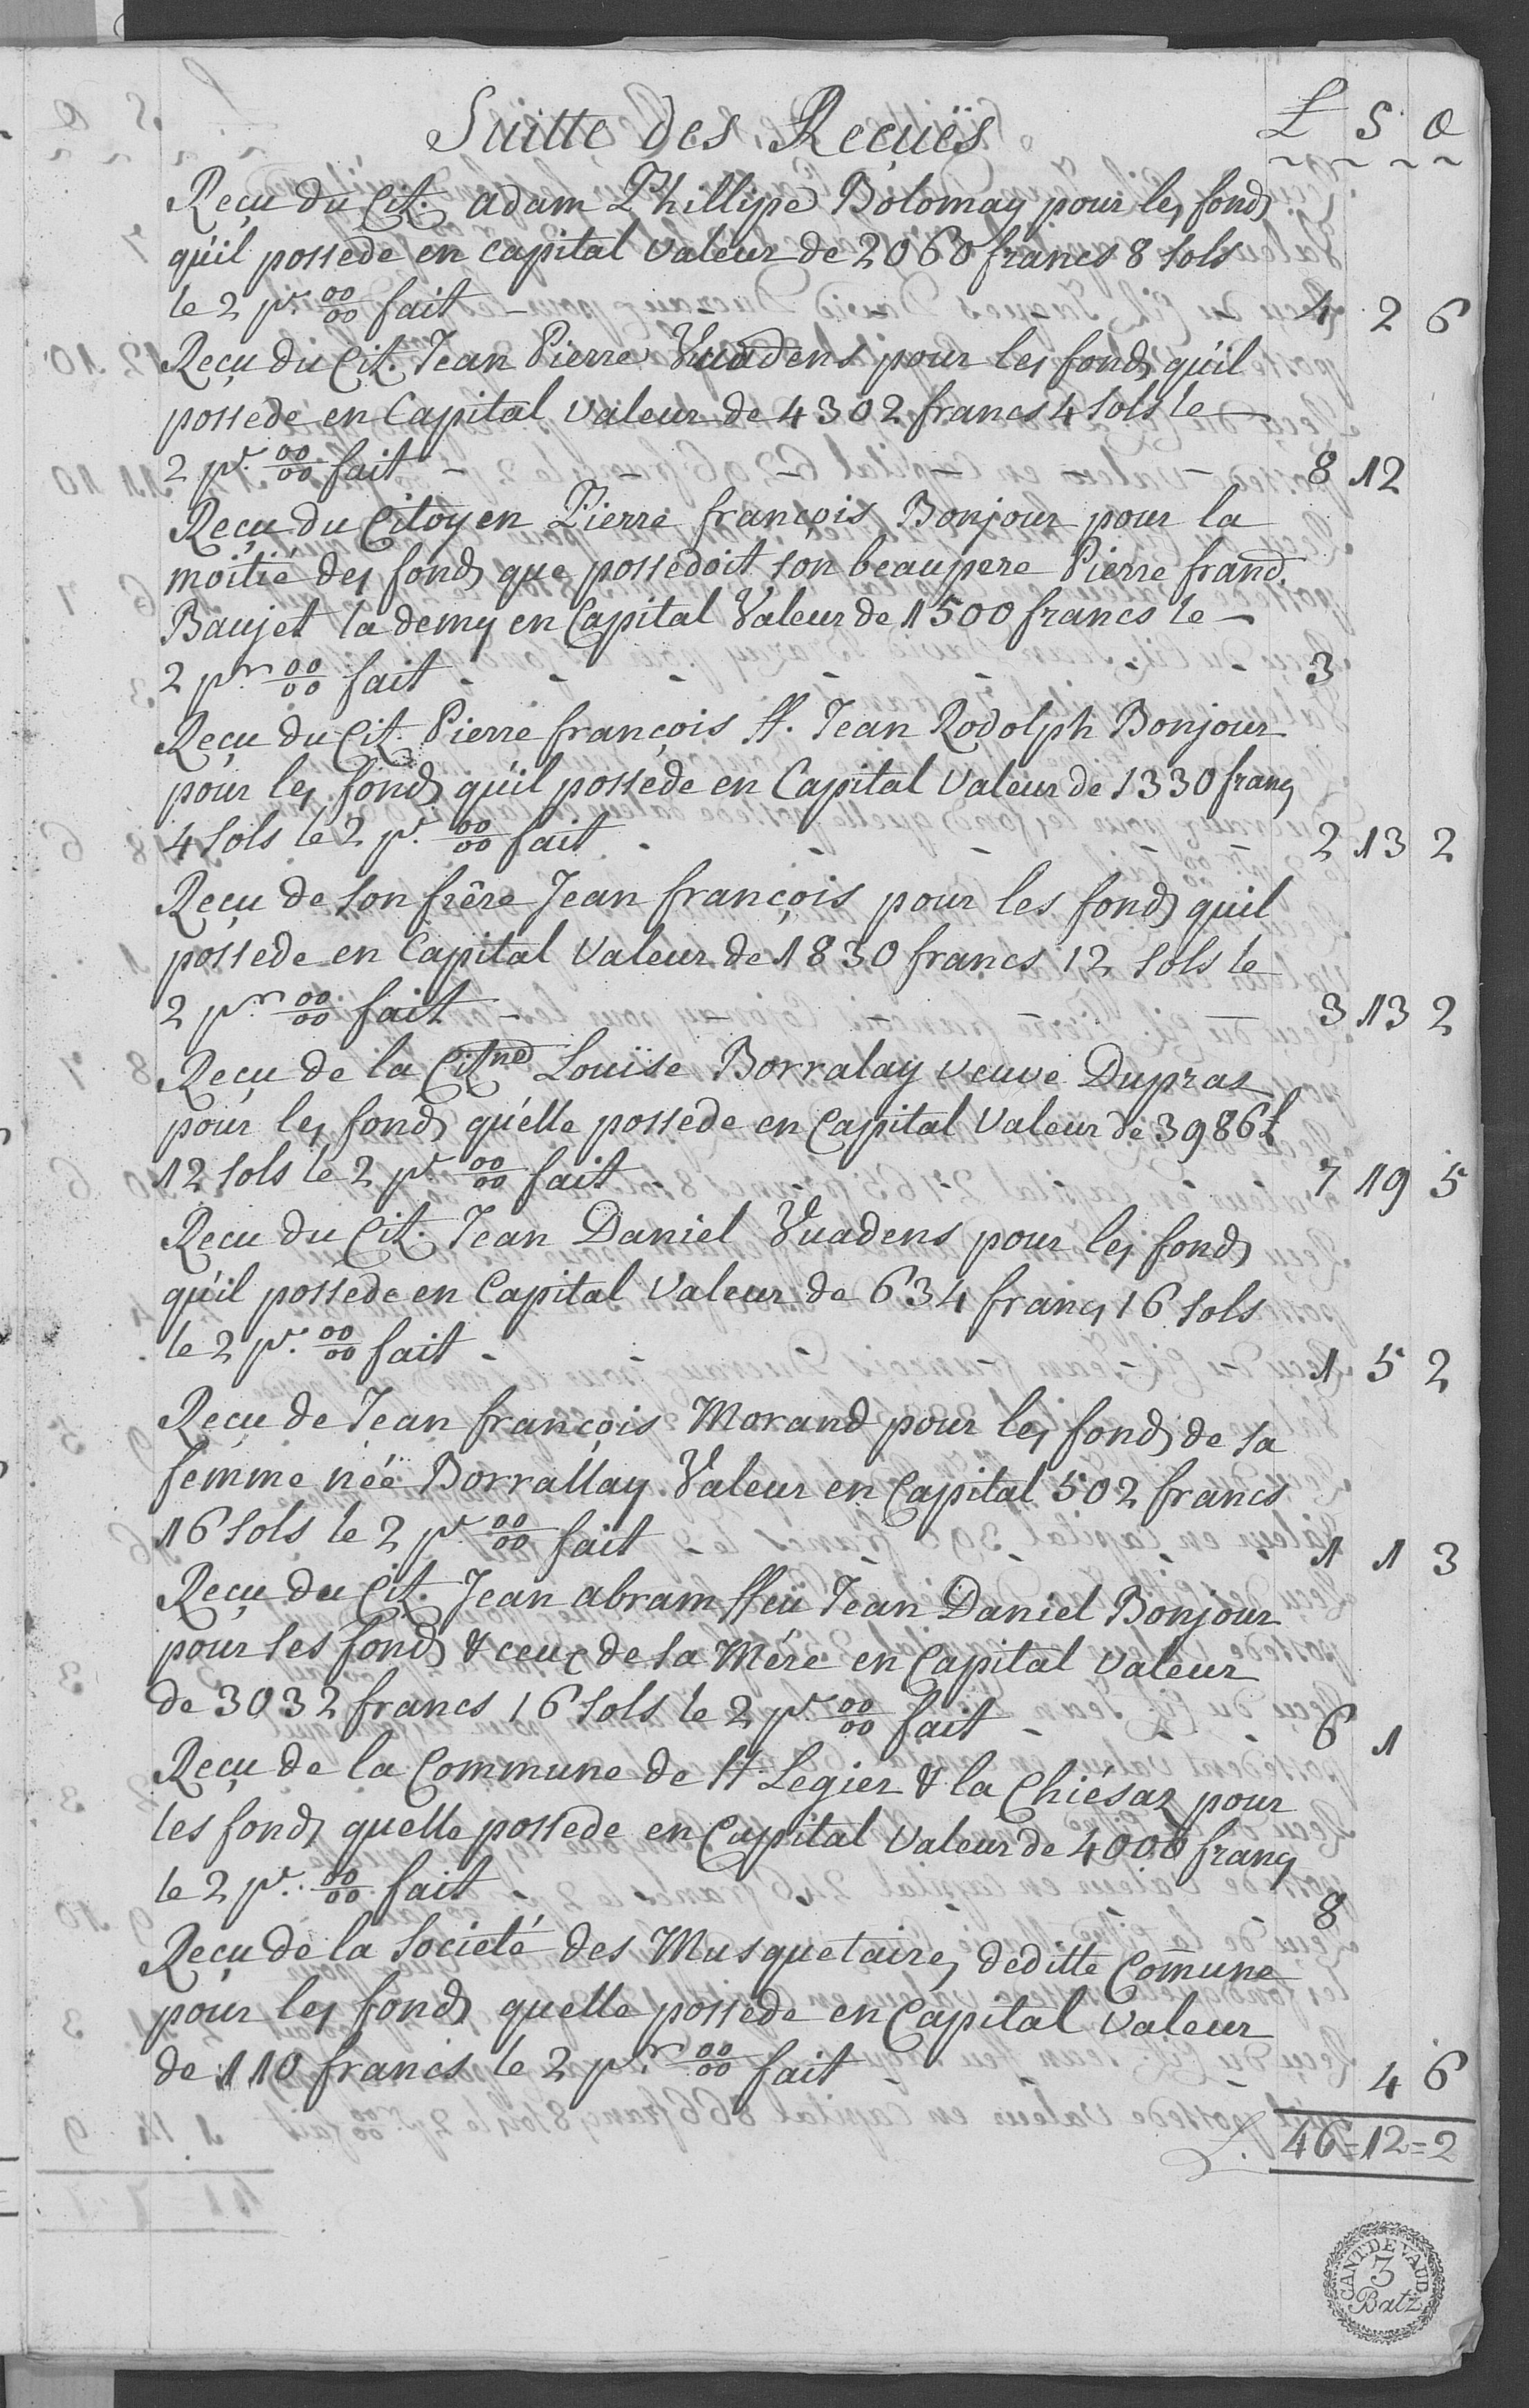 Suitte des Reçuës £ S. d
Reçu du Cit. adam Phillipe Bolomay pour les fonds
qu'il possede en capital valeur de 2060 francs 8 sols
le 2 pr. 00/00 fait - 4 2 6
Reçu du Cit. Jean Pierre Vuadens pour les fonds qu'il
possede en Capital valeur de 4302 francs 4 sols le
2 pr. 00/00 fait - 8 12
Reçu du Citoyen Pierre françois Bonjour pour la
moitié des fonds que possedoit son beaupere Pierre frand.
Baujet la demy en Capital Valeur de 1500 francs le -
2 pr. 00/00 fait - 3
Reçu du Cit. Pierre françois ff. Jean Rodolph Bonjour
pour les fonds qu'il possede en Capital Valeur de 1330 francs
4 sols le 2 pr. 00/00 fait - 2 13 2
Reçu de son frêre Jean françois pour les fonds qu'il
possede en Capital Valeur de 1830 francs 12 sols le
2 pr. 00/00 fait - 3 13 2
Reçu de la Citne Louïse Borralay veuve Dupraz
pour les fonds qu'elle possede en Capital Valeur de 3986 £
12 sols le 2 pr 00/00 fait - 7 19 5
Reçu du Cit. Jean Daniel Vuadens pour les fonds
qu'il possede en Capital Valeur de 634 francs 16 sols
le 2 pr. 00/00 fait - 1 5 2
Reçu de Jean françois Morand pour les fonds de sa
femme née Borrallay Valeur en Capital 502 francs
16 sols le 2 pr 00/00 fait - 1 1 3
Reçu du Cit. Jean abram ffeü Jean Daniel Bonjour
pour ses fonds & ceux de sa Mére en Capital valeur
de 3032 francs 16 sols le 2 pr 00/00 fait - 6 1
Reçu de la Commune de St Legier & la Chiésaz pour
les fonds quelle possede en Capital Valeur de 4000 francs
le 2 pr. 00/00 fait - 8
Reçu de la Societé des Musquetaires deditte Comune
pour les fonds quelle possede en Capital Valeur
de 110 francs le 2 pr. 00/00 fait - 4 6
L. 46=12=2
CANT. DE VAUD.
3
Batz.